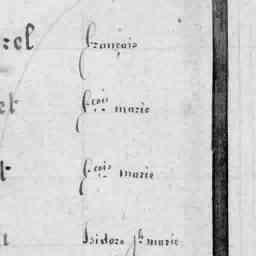 rel françois
et fçois marie
t fçois marie
t Isidore Jh marie